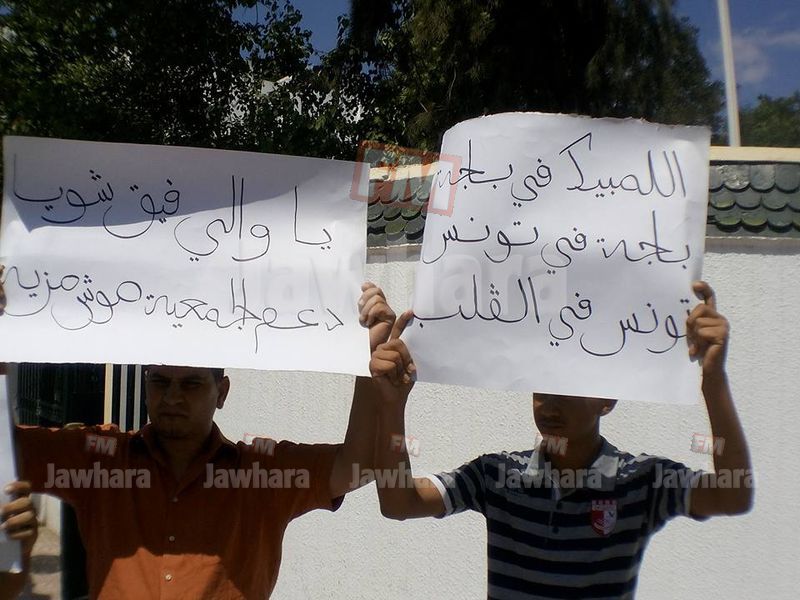 يا والي فيق شويا
دعم الجمعية موش مزيه
اللمبيك في بلجة
بلجة في تونس
تونس في القلب
FM
Jawhara
FM
Jawhara
FM
Jawhara
FM
Jawhara
FM
Jawhara